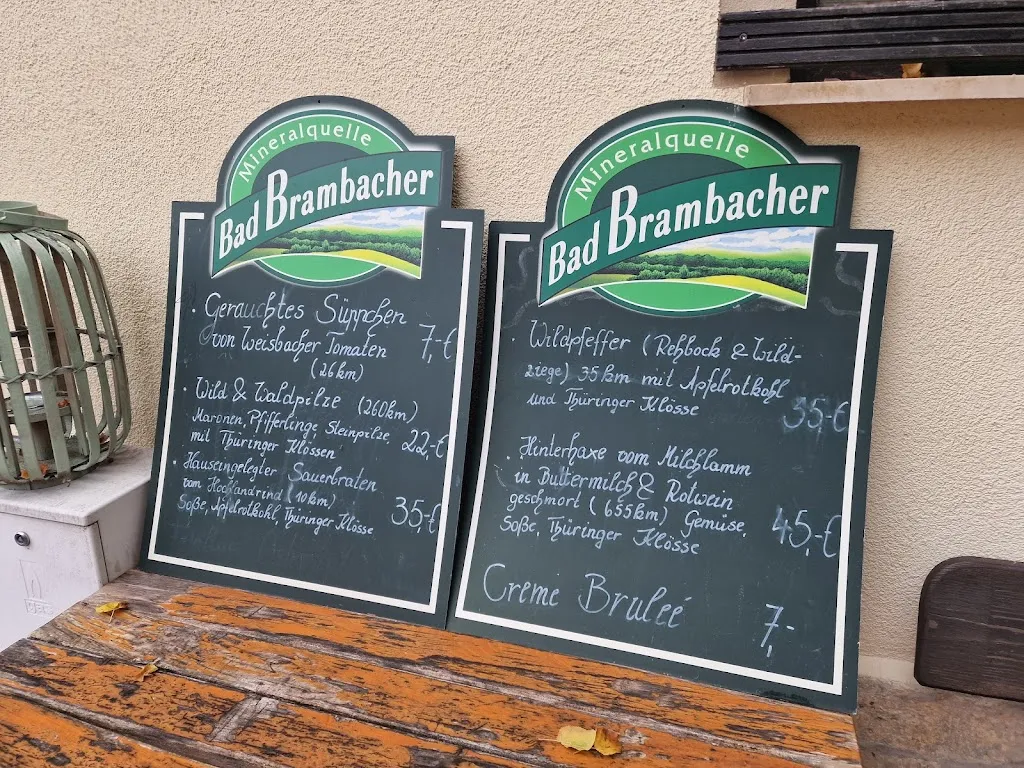 Mineralquelle
Bad Brambacher
· Gerauchtes Süppchen
von Weisbacher Tomaten 7,-€
(26km)
· Wild & Waldpilze (260km)
Maronen, Pfifferlinge, Steinpilze, 22,-€
mit Thüringer Klössen
· Hauseingelegter Sauerbraten
vom Hochlandrind (10km)
Soße, Apfelrotkohl, Thüringer Klösse 35,-€
Mineralquelle
Bad Brambacher
· Wildpfeffer (Rehbock & Wild-
ziege) 35km mit Apfelrotkohl
und Thüringer Klösse 35,-€
· Hinterhaxe vom Milchlamm
in Buttermilch & Rotwein
geschmort (655km) Gemüse,
Soße, Thüringer Klösse 45,-€
Creme Bruleé 7,-